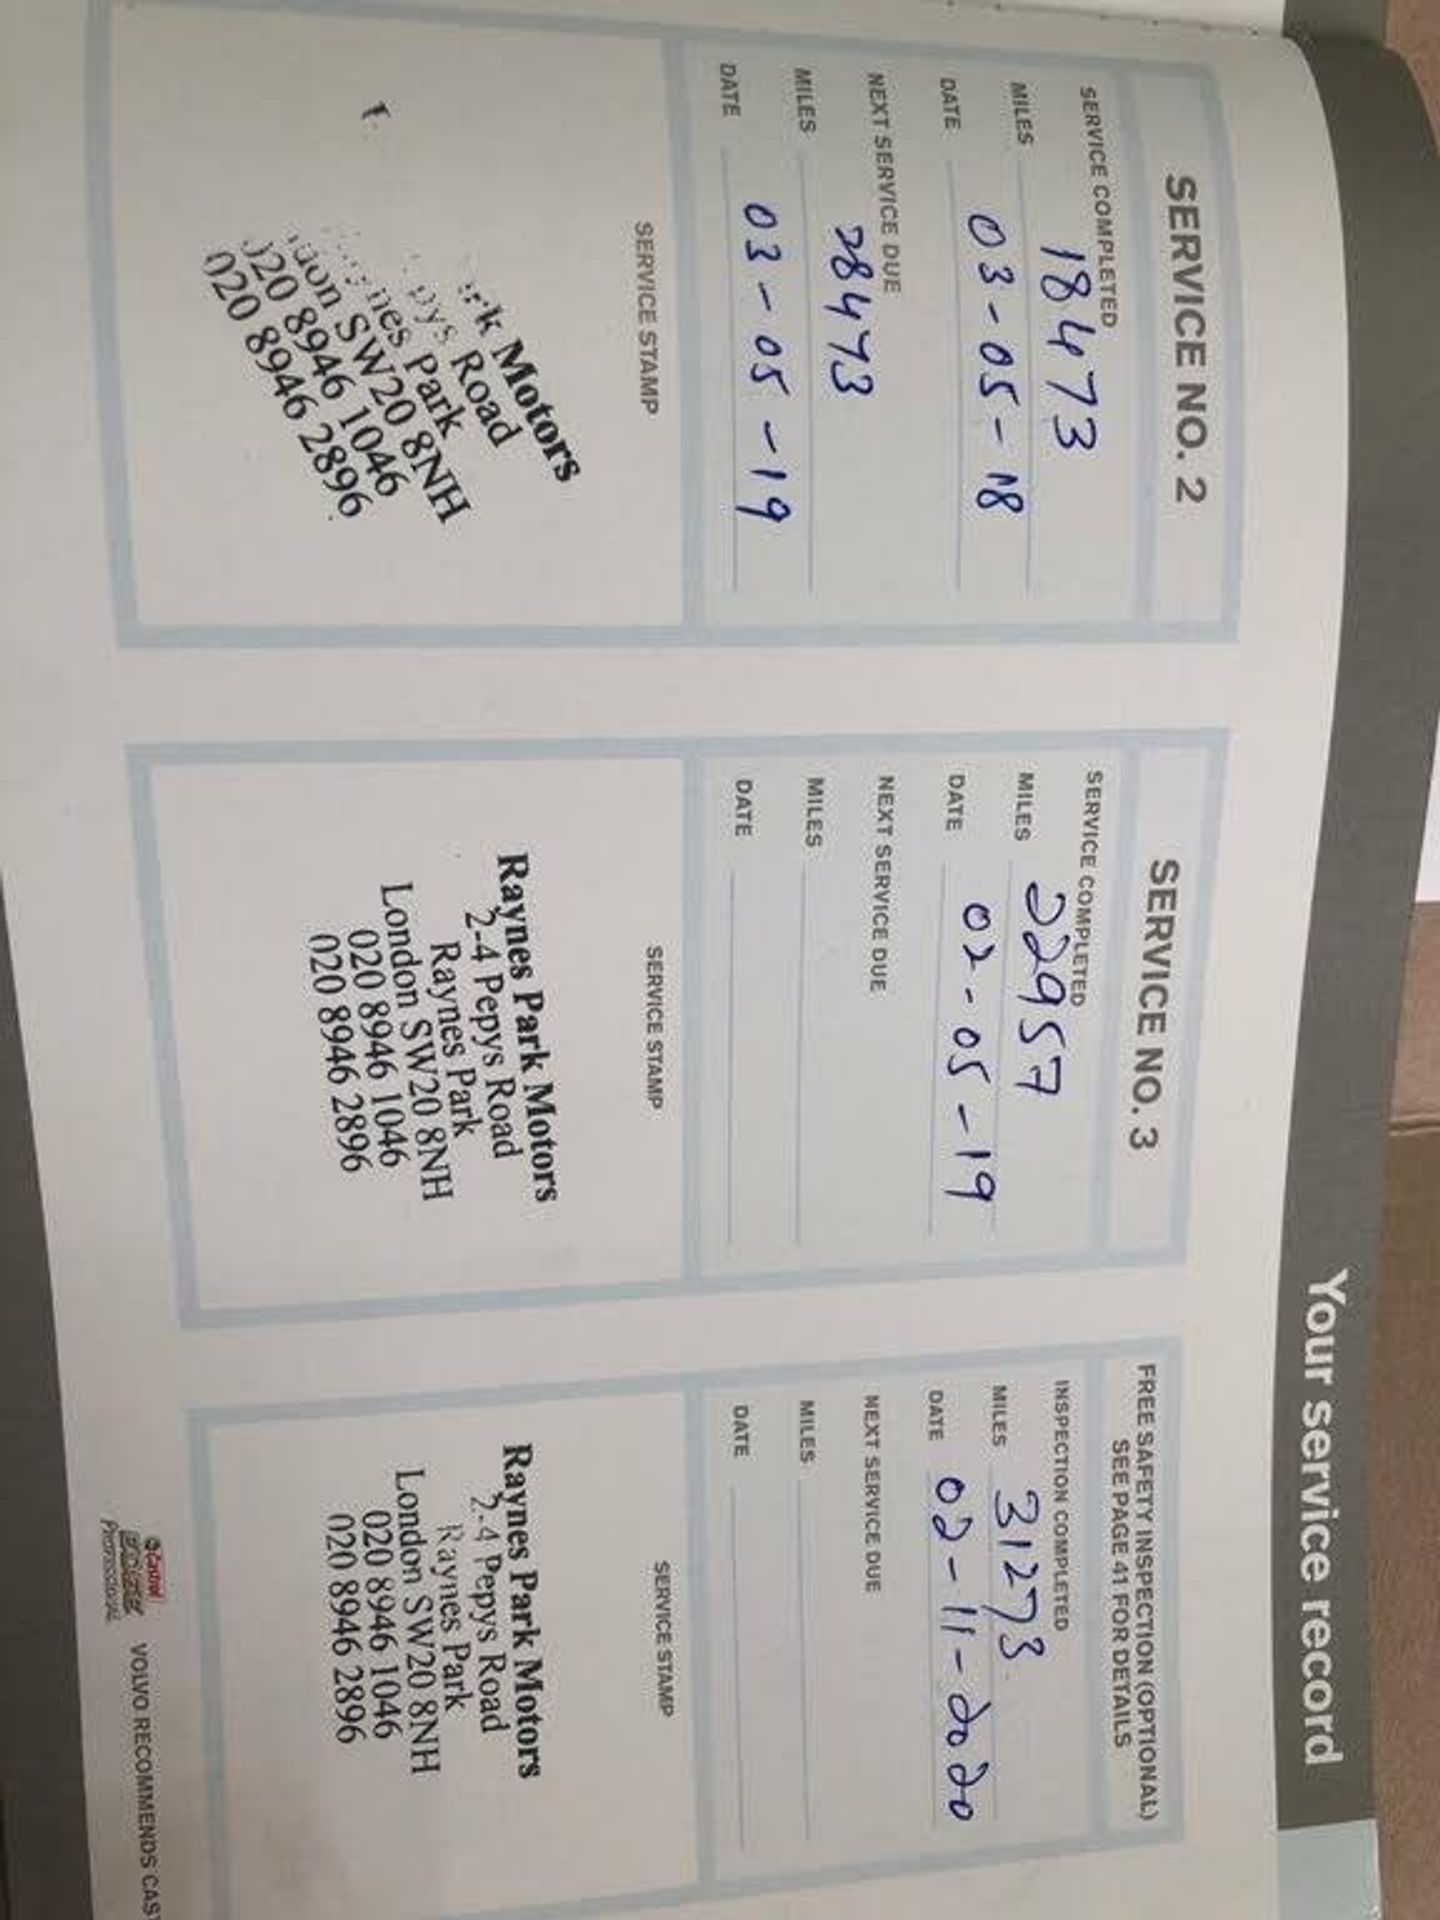 Your service record
SERVICE NO. 2
SERVICE COMPLETED
MILES 18473
DATE 03-05-18
NEXT SERVICE DUE
MILES 28473
DATE 03-05-19
SERVICE STAMP
Motors
Road
Park
SW20 8NH
020 8946 1046
020 8946 2896
SERVICE NO. 3
SERVICE COMPLETED
MILES 22957
DATE 02-05-19
NEXT SERVICE DUE
MILES
DATE
SERVICE STAMP
Raynes Park Motors
2-4 Pepys Road
Raynes Park
London SW20 8NH
020 8946 1046
020 8946 2896
FREE SAFETY INSPECTION (OPTIONAL)
SEE PAGE 41 FOR DETAILS
INSPECTION COMPLETED
MILES 31273
DATE 02-11-2020
NEXT SERVICE DUE
MILES
DATE
SERVICE STAMP
Raynes Park Motors
2-4 Pepys Road
Raynes Park
London SW20 8NH
020 8946 1046
020 8946 2896
Castrol
EDGE
Professional
VOLVO RECOMMENDS CAST